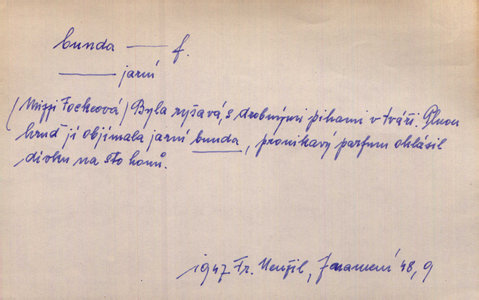 bunda — f.
— jarní
(Mizzi Fockeová) Byla ryšavá, s drobnými pihami v tváři. Plnou
hruď jí objímala jarní bunda, pronikavý parfum ohlásil
dívku na sto honů.
1947 Fr. Neužil, Znamení 48, 9